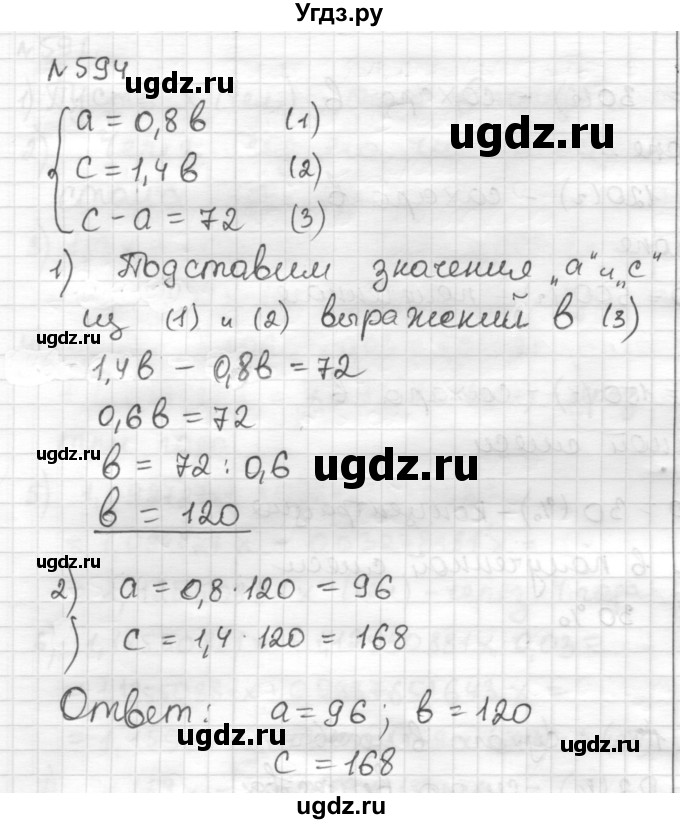 Угдз.ру
№594
ugdz.ru
ugdz.ru
a = 0,8в (1)
c = 1,4в (2)
ugdz.ru
c - a = 72 (3)
1) Подставим значения „a" и „c"
из (1) и (2) выражений в (3)
ugdz.ru
1,4в - 0,8в = 72
0,6в = 72
ugdz.ru
в = 72 : 0,6
ugdz.ru
в = 120
ugdz.ru
2) a = 0,8·120 = 96
ugdz.ru
) c = 1,4·120 = 168
Ответ: a = 96; в = 120
ugdz.ru
ugdz.ru
c = 168
ugdz.ru